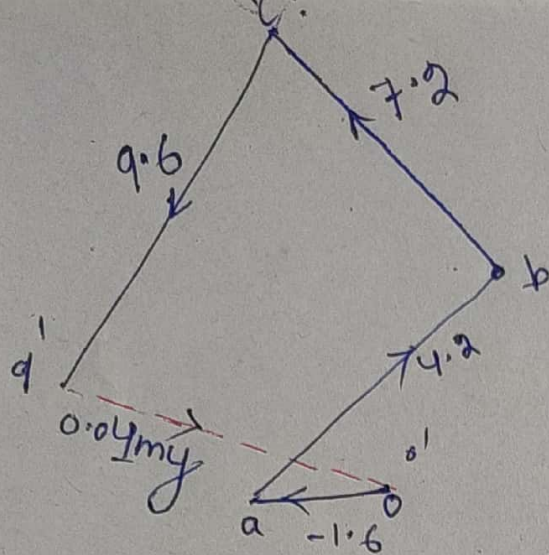 c.
7.2
9.6
b
d'
4.2
0.04my
o'
a
o
-1.6